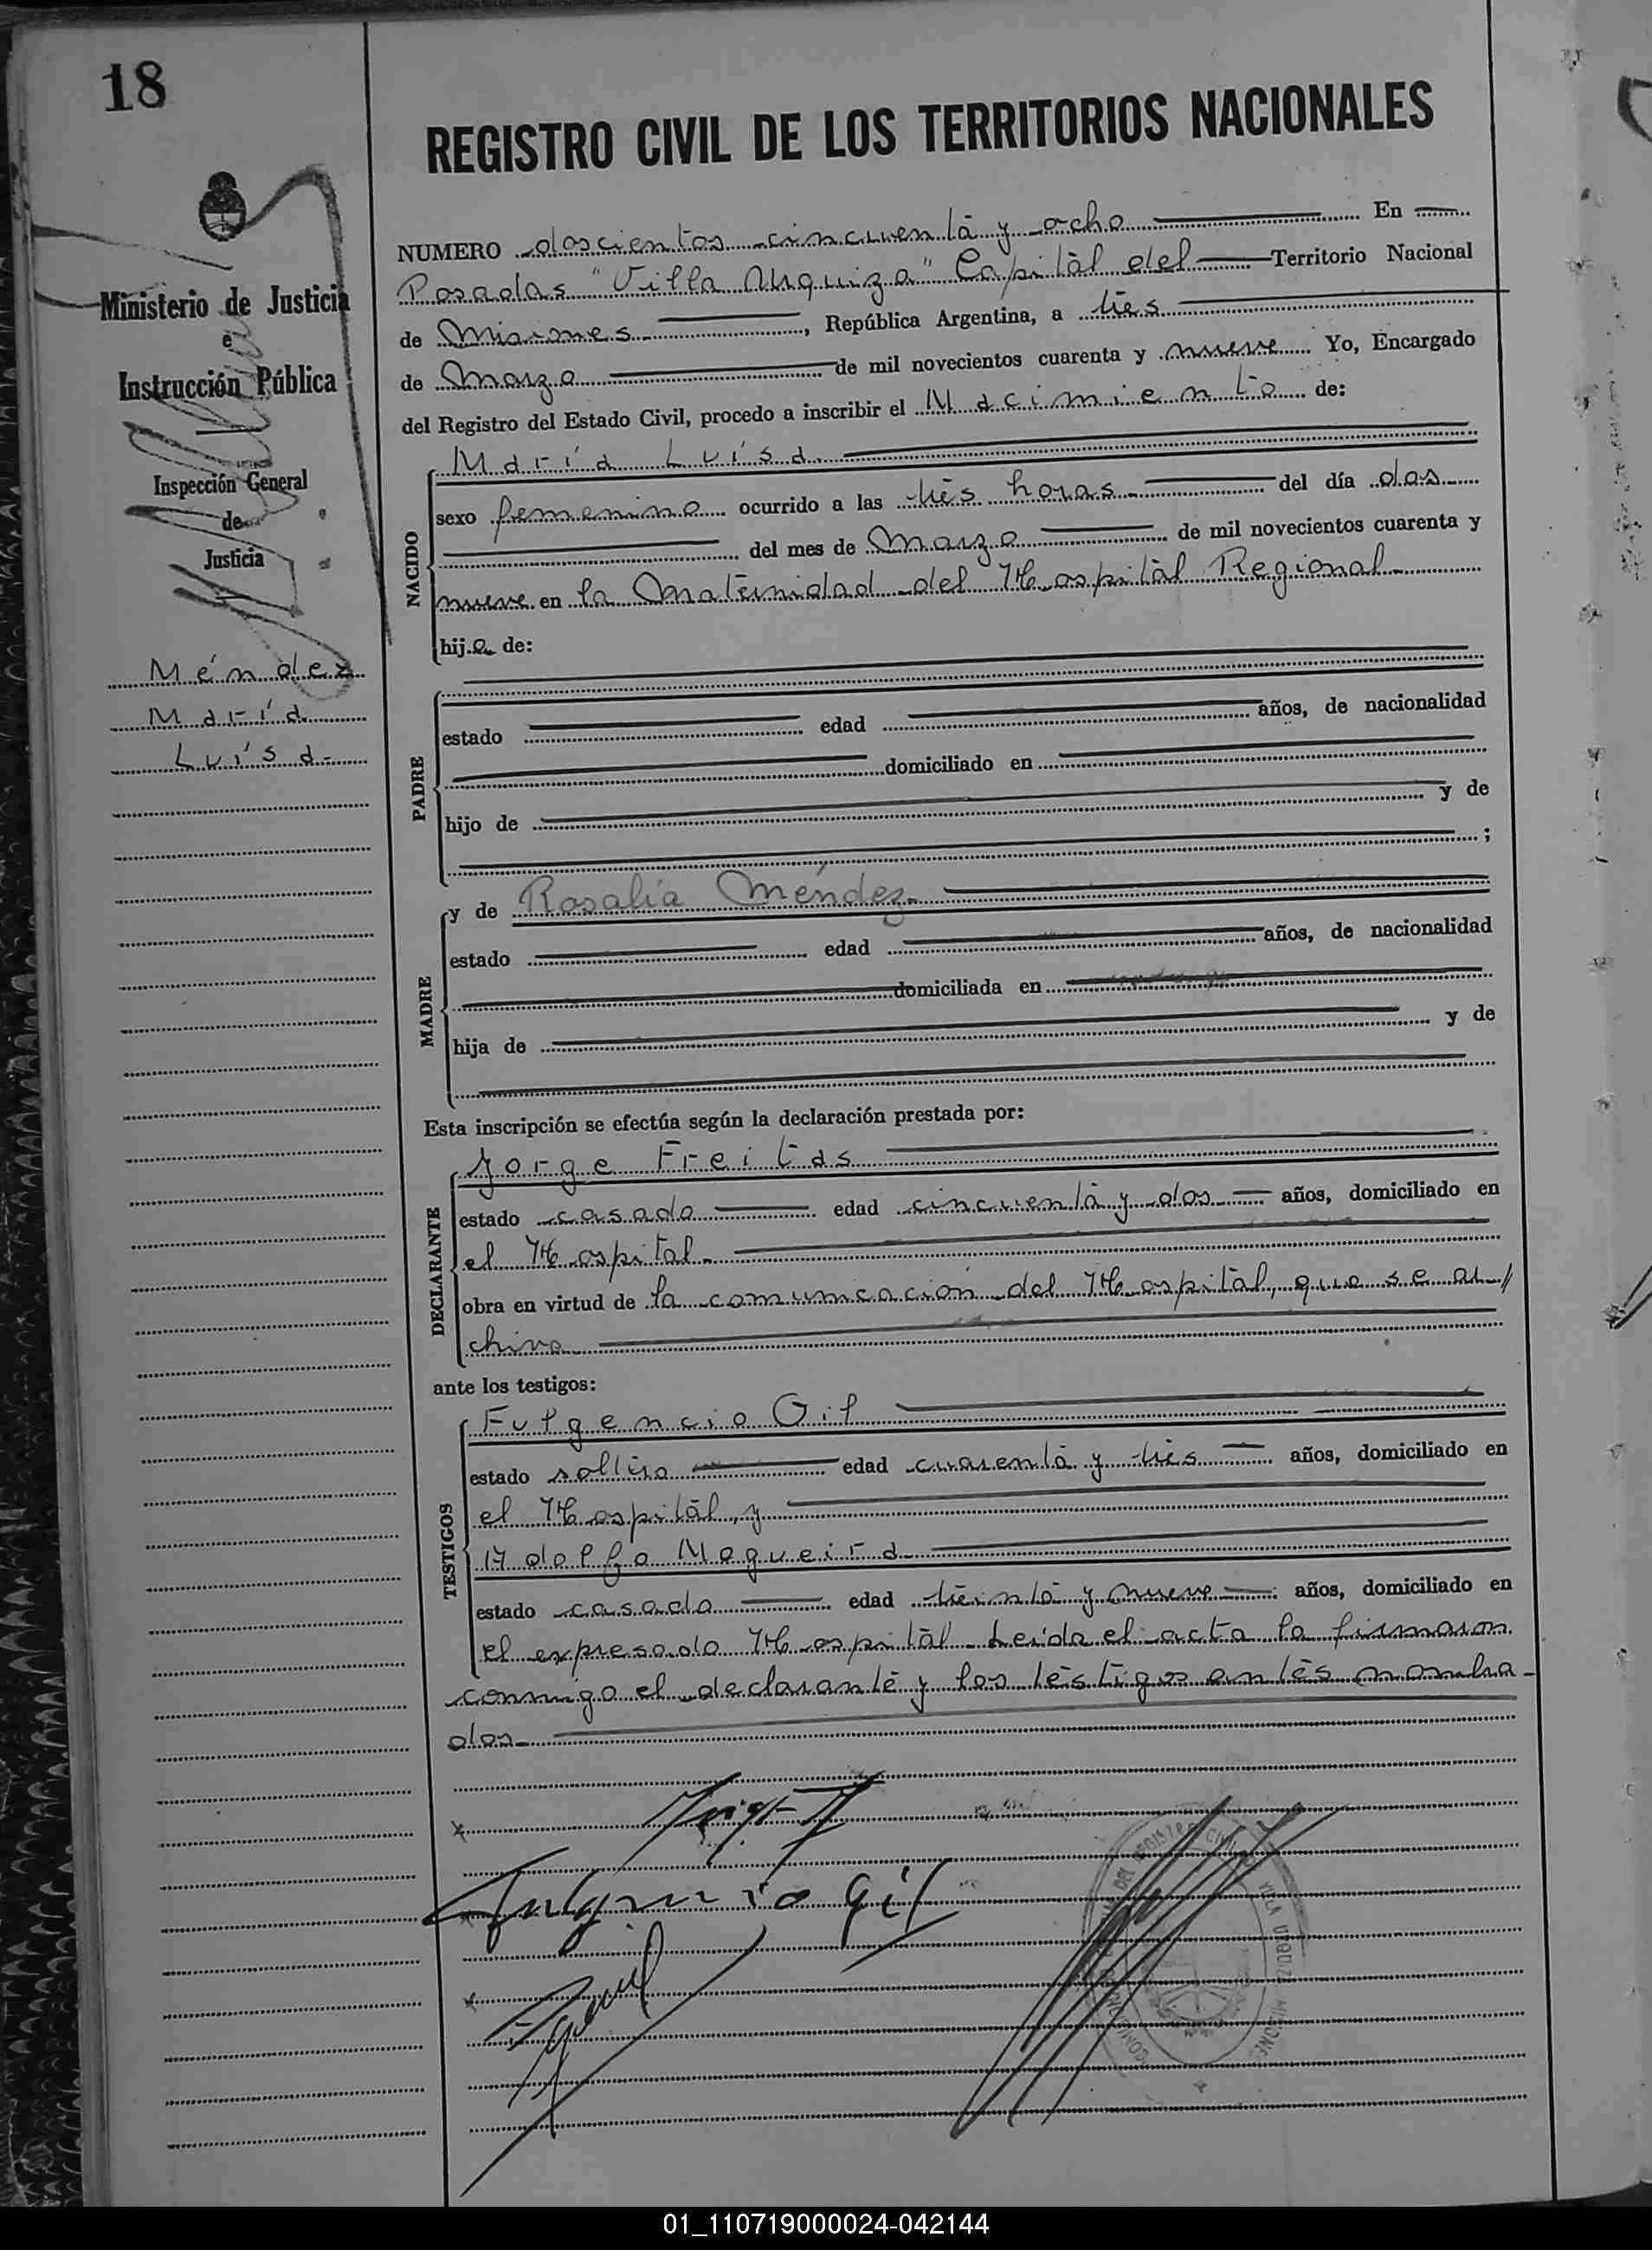 18
REGISTRO CIVIL DE LOS TERRITORIOS NACIONALES
Ministerio de Justicia
e
Instrucción Pública
Inspección General
de
Justicia
Méndez
María
Luisa.
NUMERO doscientos cincuenta y ocho En
Posadas "Villa Urquiza" Capital del Territorio Nacional
de Misiones, República Argentina, a tres
de Marzo de mil novecientos cuarenta y nueve Yo, Encargado
del Registro del Estado Civil, procedo a inscribir el Nacimiento de:
NACIDO
María Luisa.
sexo femenino ocurrido a las tres horas del día dos
del mes de Marzo de mil novecientos cuarenta y
nueve en la Maternidad del Hospital Regional
hija de:
PADRE
estado edad años, de nacionalidad
domiciliado en
hijo de y de
;
MADRE
y de Rosalía Méndez.
estado edad años, de nacionalidad
domiciliada en
hija de y de
Esta inscripción se efectúa según la declaración prestada por:
DECLARANTE
Jorge Freitas
estado casado edad cincuenta y dos años, domiciliado en
el Hospital.
obra en virtud de la comunicación del Hospital, que se ar//
chiva
ante los testigos:
TESTIGOS
Fulgencio Gil
estado soltero edad cuarenta y tres años, domiciliado en
el Hospital, y
Adolfo Nogueira.
estado casado edad treinta y nueve años, domiciliado en
el expresado Hospital. Leída el acta la firmaron
conmigo el declarante y los testigos antes nombra-
dos.
Fulgencio Gil
REGISTRO CIVIL
VILLA URQUIZA MISIONES
01_110719000024-042144